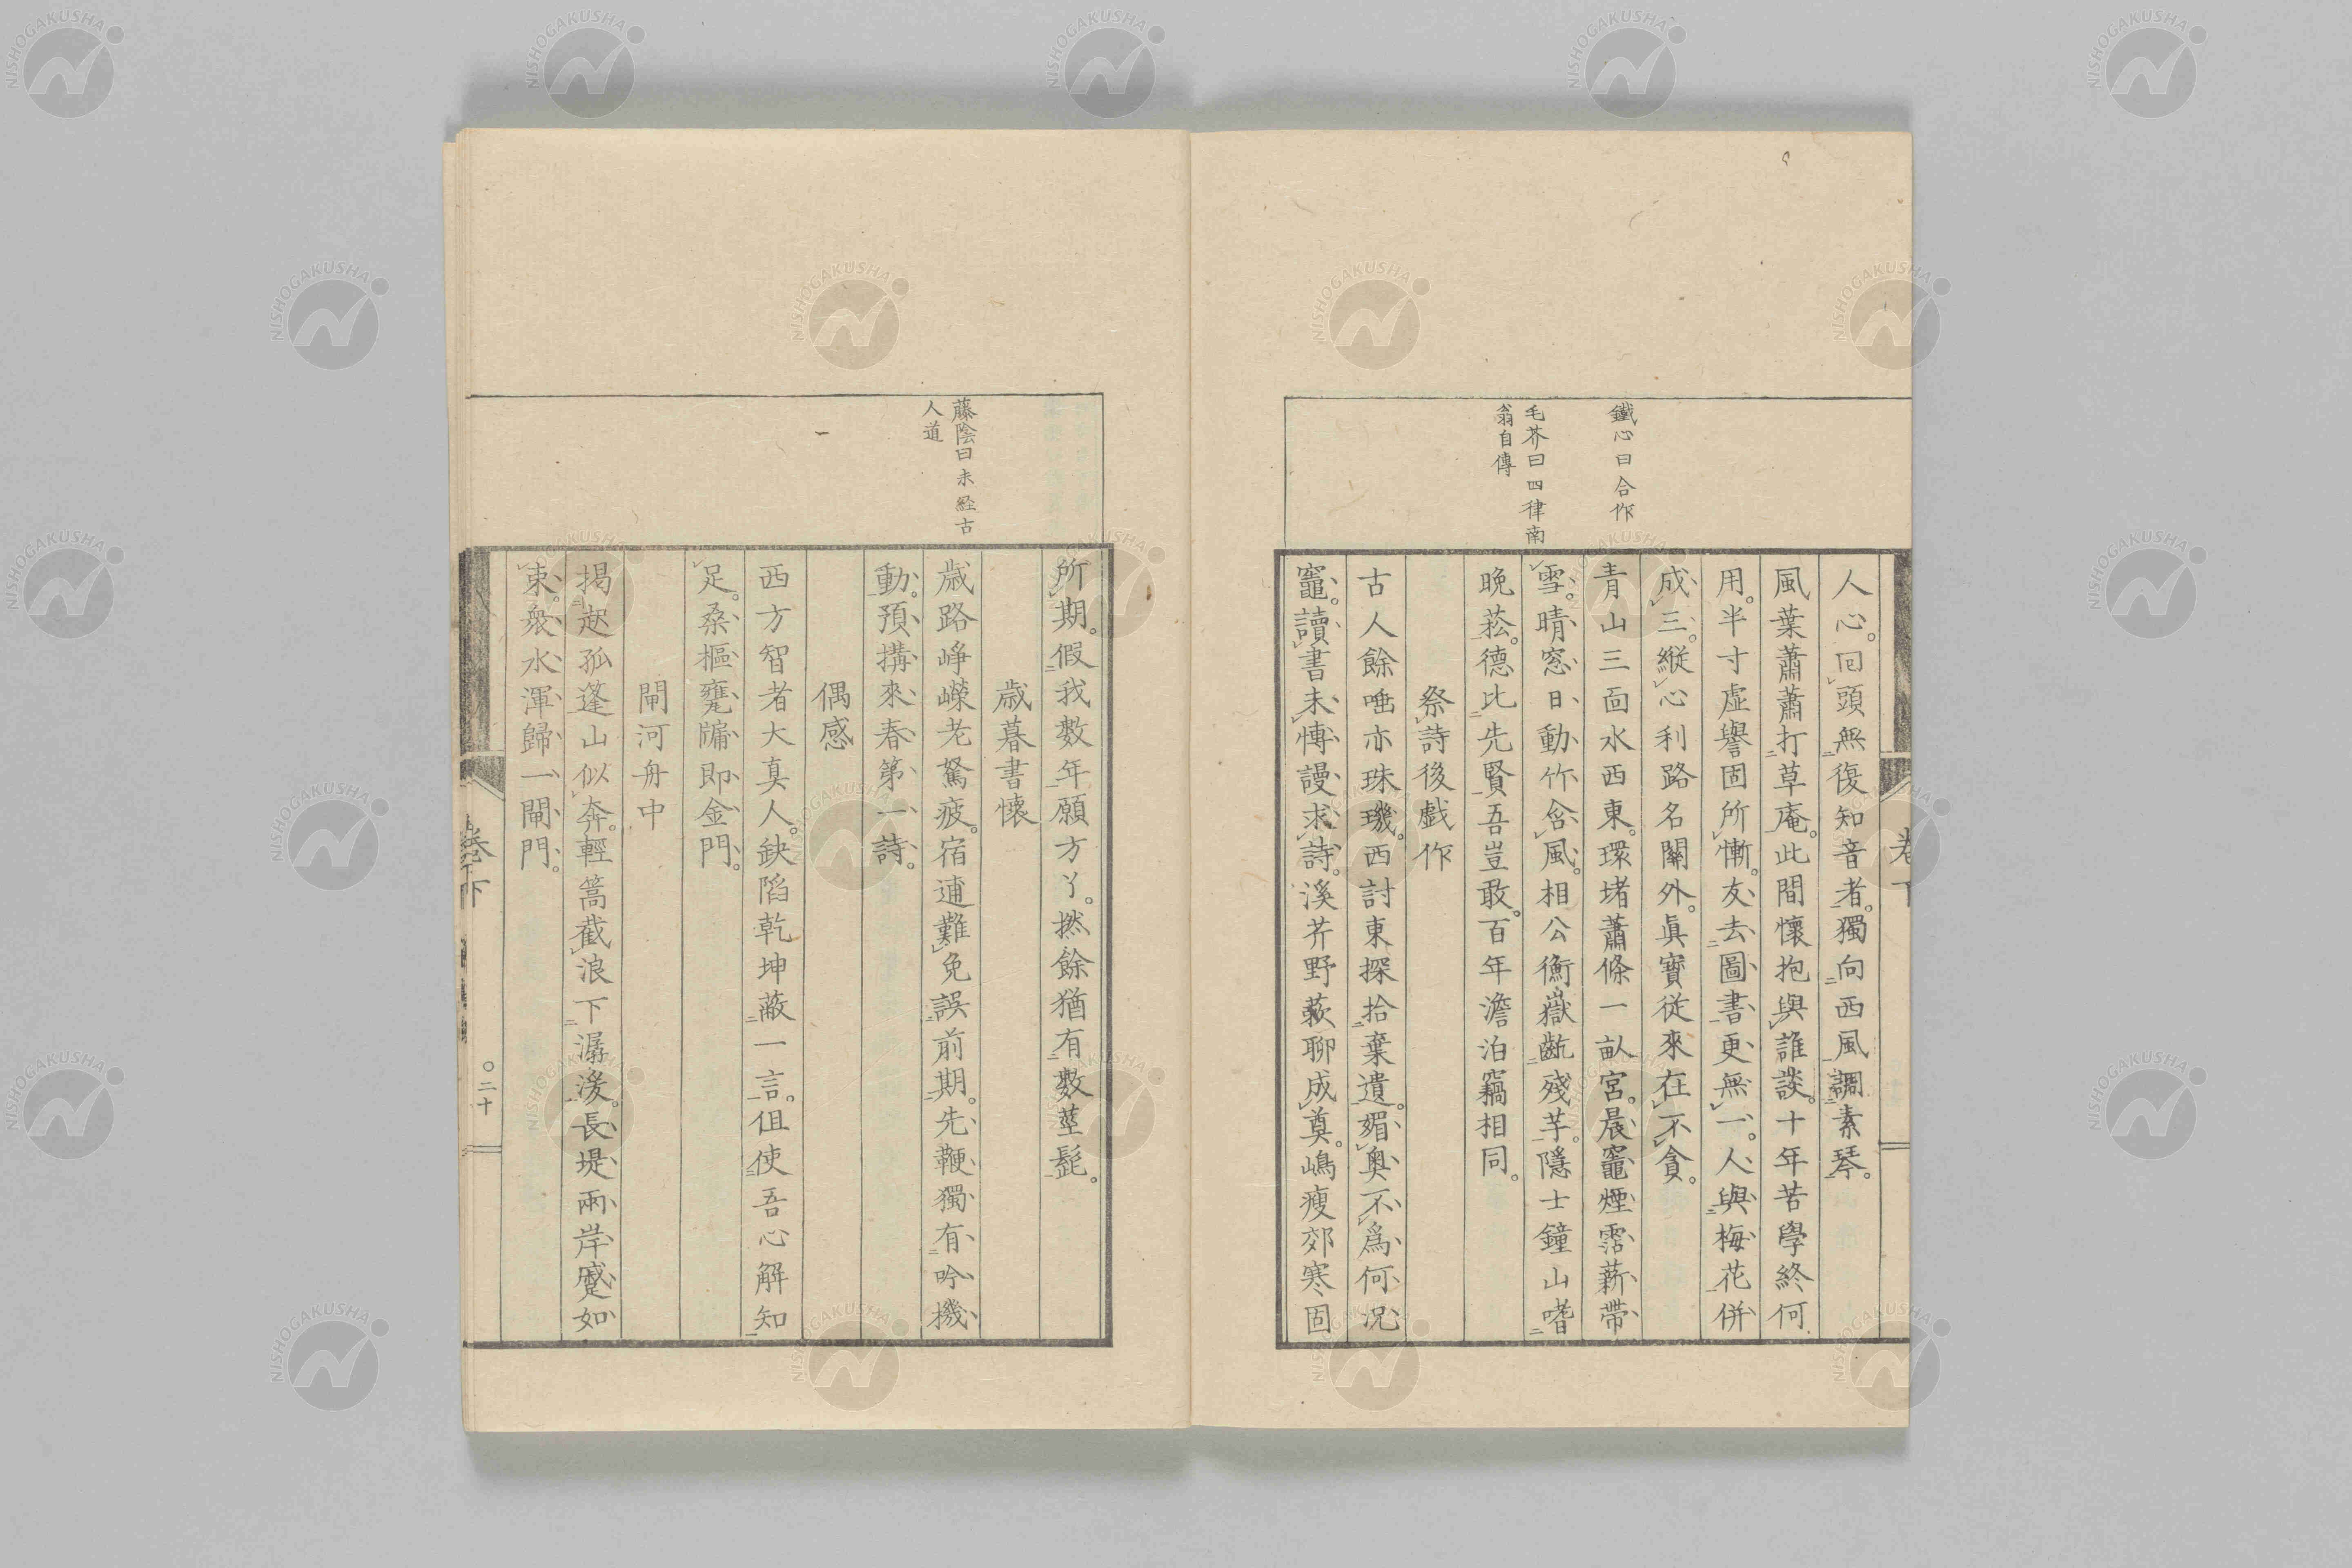 鐵心曰合作
毛芥曰四律南
翁自傳
人心。回頭無復知音者。獨向西風調素琴。
風葉蕭蕭打草庵。此間懷抱與誰談。十年苦學終何
用。半寸虛譽固所慚。友去圖書更無一。人與梅花併
成三。縱心利路名關外。眞寶從來在不貪。
青山三面水西東。環堵蕭條一畝宮。晨竈煙霑薪帶
雪。晴窓日動竹含風。相公衡嶽齔殘芋。隱士鐘山嗜
晚菘。德比先賢吾豈敢。百年澹泊竊相同。
祭詩後戲作
古人餘唾亦珠璣。西討東探拾棄遺。媚奧不爲何況
竈。讀書未慱謾求詩。溪芥野蔌聊成奠。嶋瘦郊寒固
卷下
藤陰曰未経古
人道
所期。假我數年願方丫。撚餘猶有數莖髭。
歲暮書懷
歲路崢嶸老駑疲。宿逋難免誤前期。先鞭獨有吟機
動。預搆來春第一詩。
偶感
西方智者大真人。缺陷乾坤蔽一言。但使吾心解知
足。桑樞甕牖即金門。
閘河舟中
揭起孤蓬山似奔。輕篙截浪下潺湲。長堤兩岸蹙如
束。衆水渾歸一閘門。
卷下
〇二十
NISHOGAKUSHA